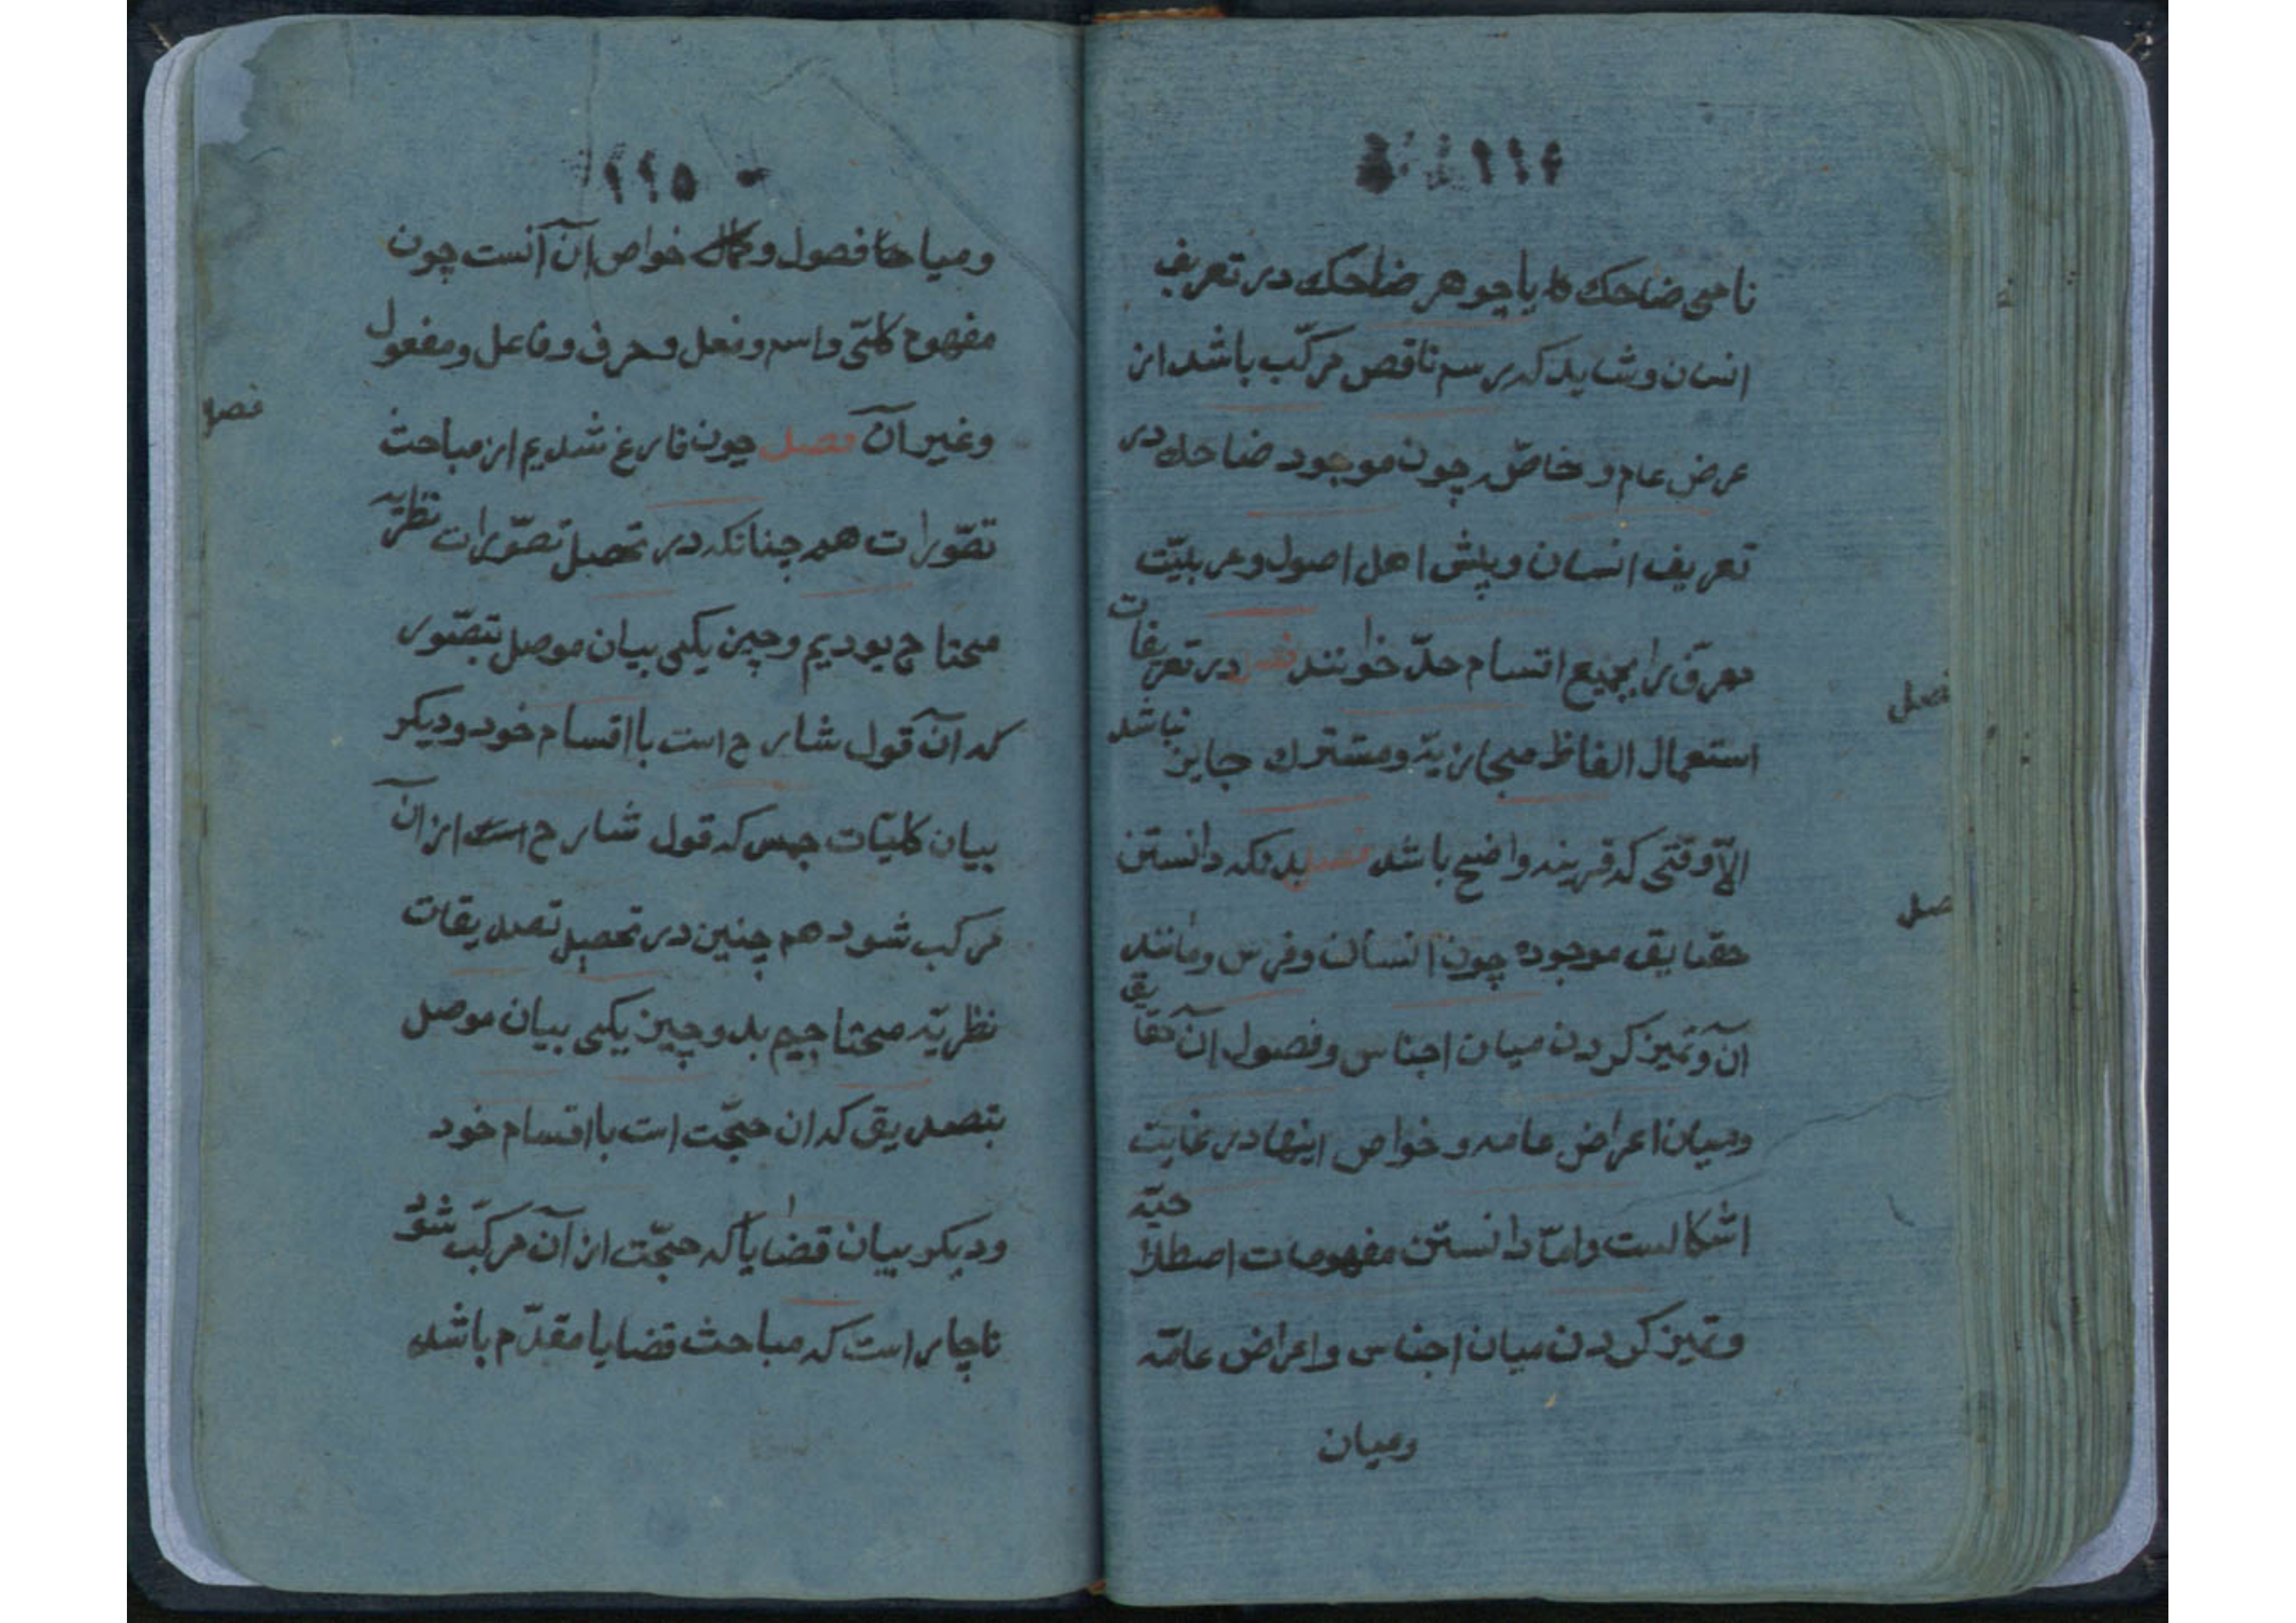 ۱۱۴
نامی ضاحك یا جوهر ضاحك در تعریف
انسان و شاید كه رسم ناقص مركّب باشد از
عرض عام و خاصّه چون موجود ضاحك در
تعریف انسان و پیش اهل اصول و عربیّت
معرّف را بجمیع اقسام حدّ خوانند فصل در تعریفات
فصل
استعمال الفاظ مجازیّه و مشترك جایز نباشد
الّا وقتی كه قرینه واضح باشد فصل بدانكه دانستن
فصل
حقایق موجوده چون انسان و فرس و مانند
آن و تمیز كردن میان اجناس و فصول آن حقایق
و میان اعراض عامه و خواص اینها در غایت
اشكالست و امّا دانستن مفهومات اصطلاحیّه
و تمیز كردن میان اجناس و اعراض عامّه
و میان
۱۱۵
و میان فصول و خواص آن آنست چون
مفهوم كلّی و اسم و فعل و حرف و فاعل و مفعول
فصل
و غیر آن فصل چون فارغ شدیم از مباحث
تصوّرات هم چنانكه در تحصیل تصوّرات نظریّه
محتاج بودیم و چیز یكی بیان موصل بتصّور
كه آن قول شارح است با اقسام خود و دیكر
بیان كلیّات خمس كه قول شارح از آن
مركب شود هم چنین در تحصیل تصدیقات
نظریّه محتاجیم بدو چیز یكی بیان موصل
بتصدیق كه ان حجّت است با اقسام خود
و دیكر بیان قضایا كه حجّت از آن مركّب شود
ناچار است كه مباحث قضایا مقدّم باشد